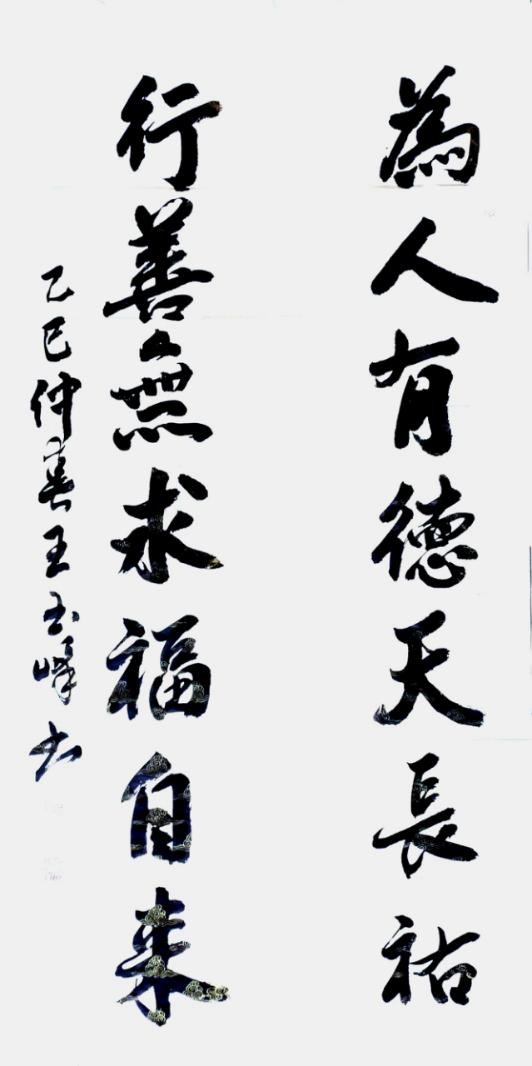 為人有德天長祐
行善無求福自来
乙巳仲春王玉峰书